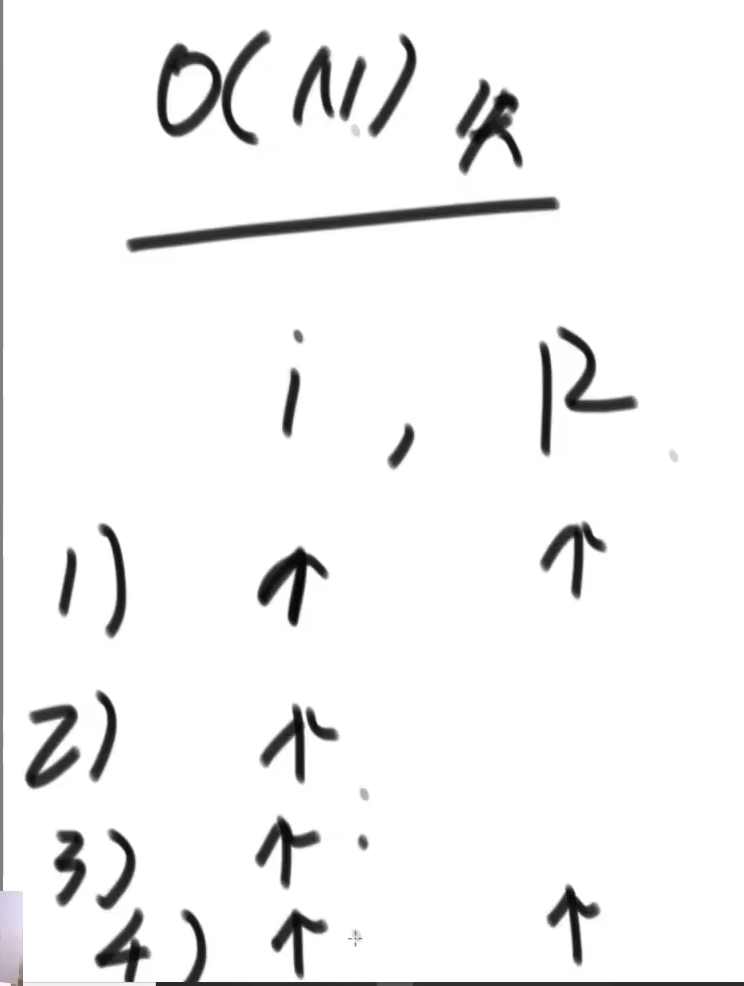 O(N)
i , R
1) ↑ ↑
2) ↑
3) ↑
4) ↑ ↑